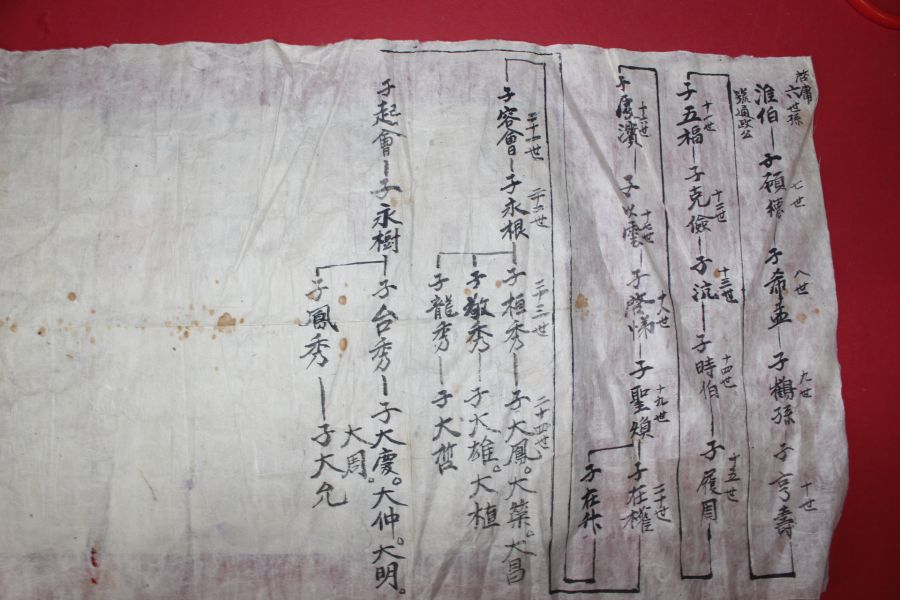 啓庸
六世孫
淮伯
號通政公
七世
子願德
八世
子希孟
九世
子鶴孫
十世
子亨壽
十一世
子五福
十二世
子克儉
十三世
子沆
十四世
子時伯
十五世
子履周
十六世
濱
十七世
子以雲
十八世
子啓悌
十九世
子聖
二十世
子在權
子在
二十一世
子容會
二十二世
子永根
二十三世
子桓秀
二十四世
子大鳳。大榮。大昌
子敬秀
子大雄。大植
子龍秀
子大哲
子起會
子永樹
子台秀
子大慶。大仲。大明。
大周。
子鳳秀
子大允